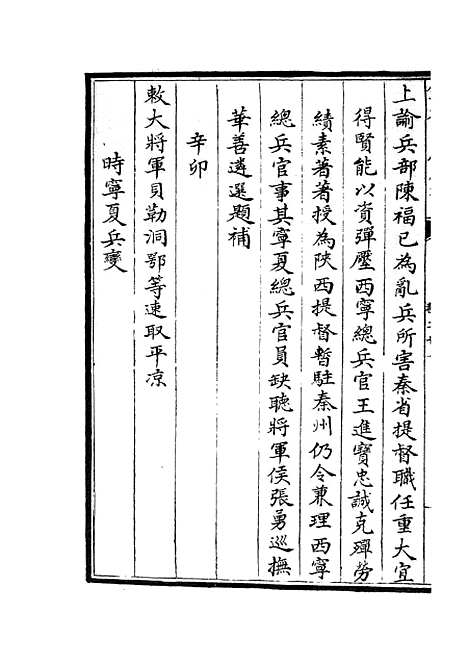 上諭兵部陳福已為亂兵所害秦省提督職任重大宜
得賢能以資彈壓西寧總兵官王進寶忠誠克殫勞
績素著著授為陝西提督暫駐秦州仍令兼理西寧
總兵官事其寧夏總兵官員缺聽將軍侯張勇巡撫
華善遴選題補
辛卯
敕大將軍貝勒洞鄂等速取平凉
時寧夏兵變